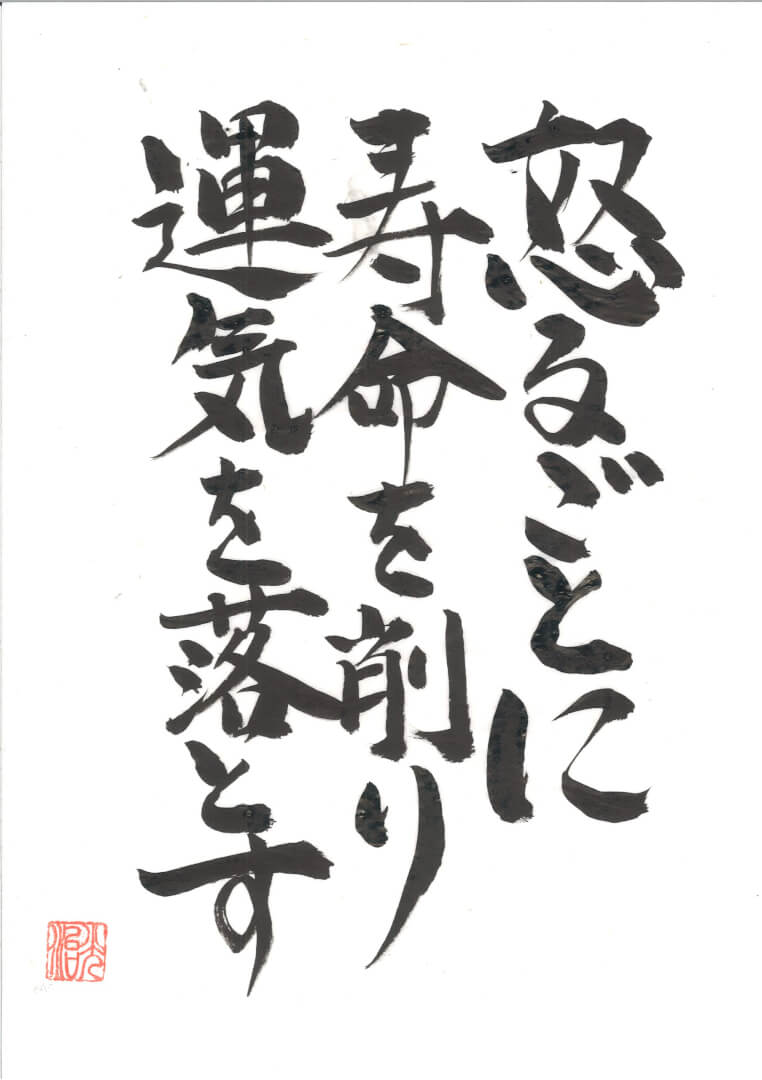 怒るごとに
寿命を削り
運気を落とす